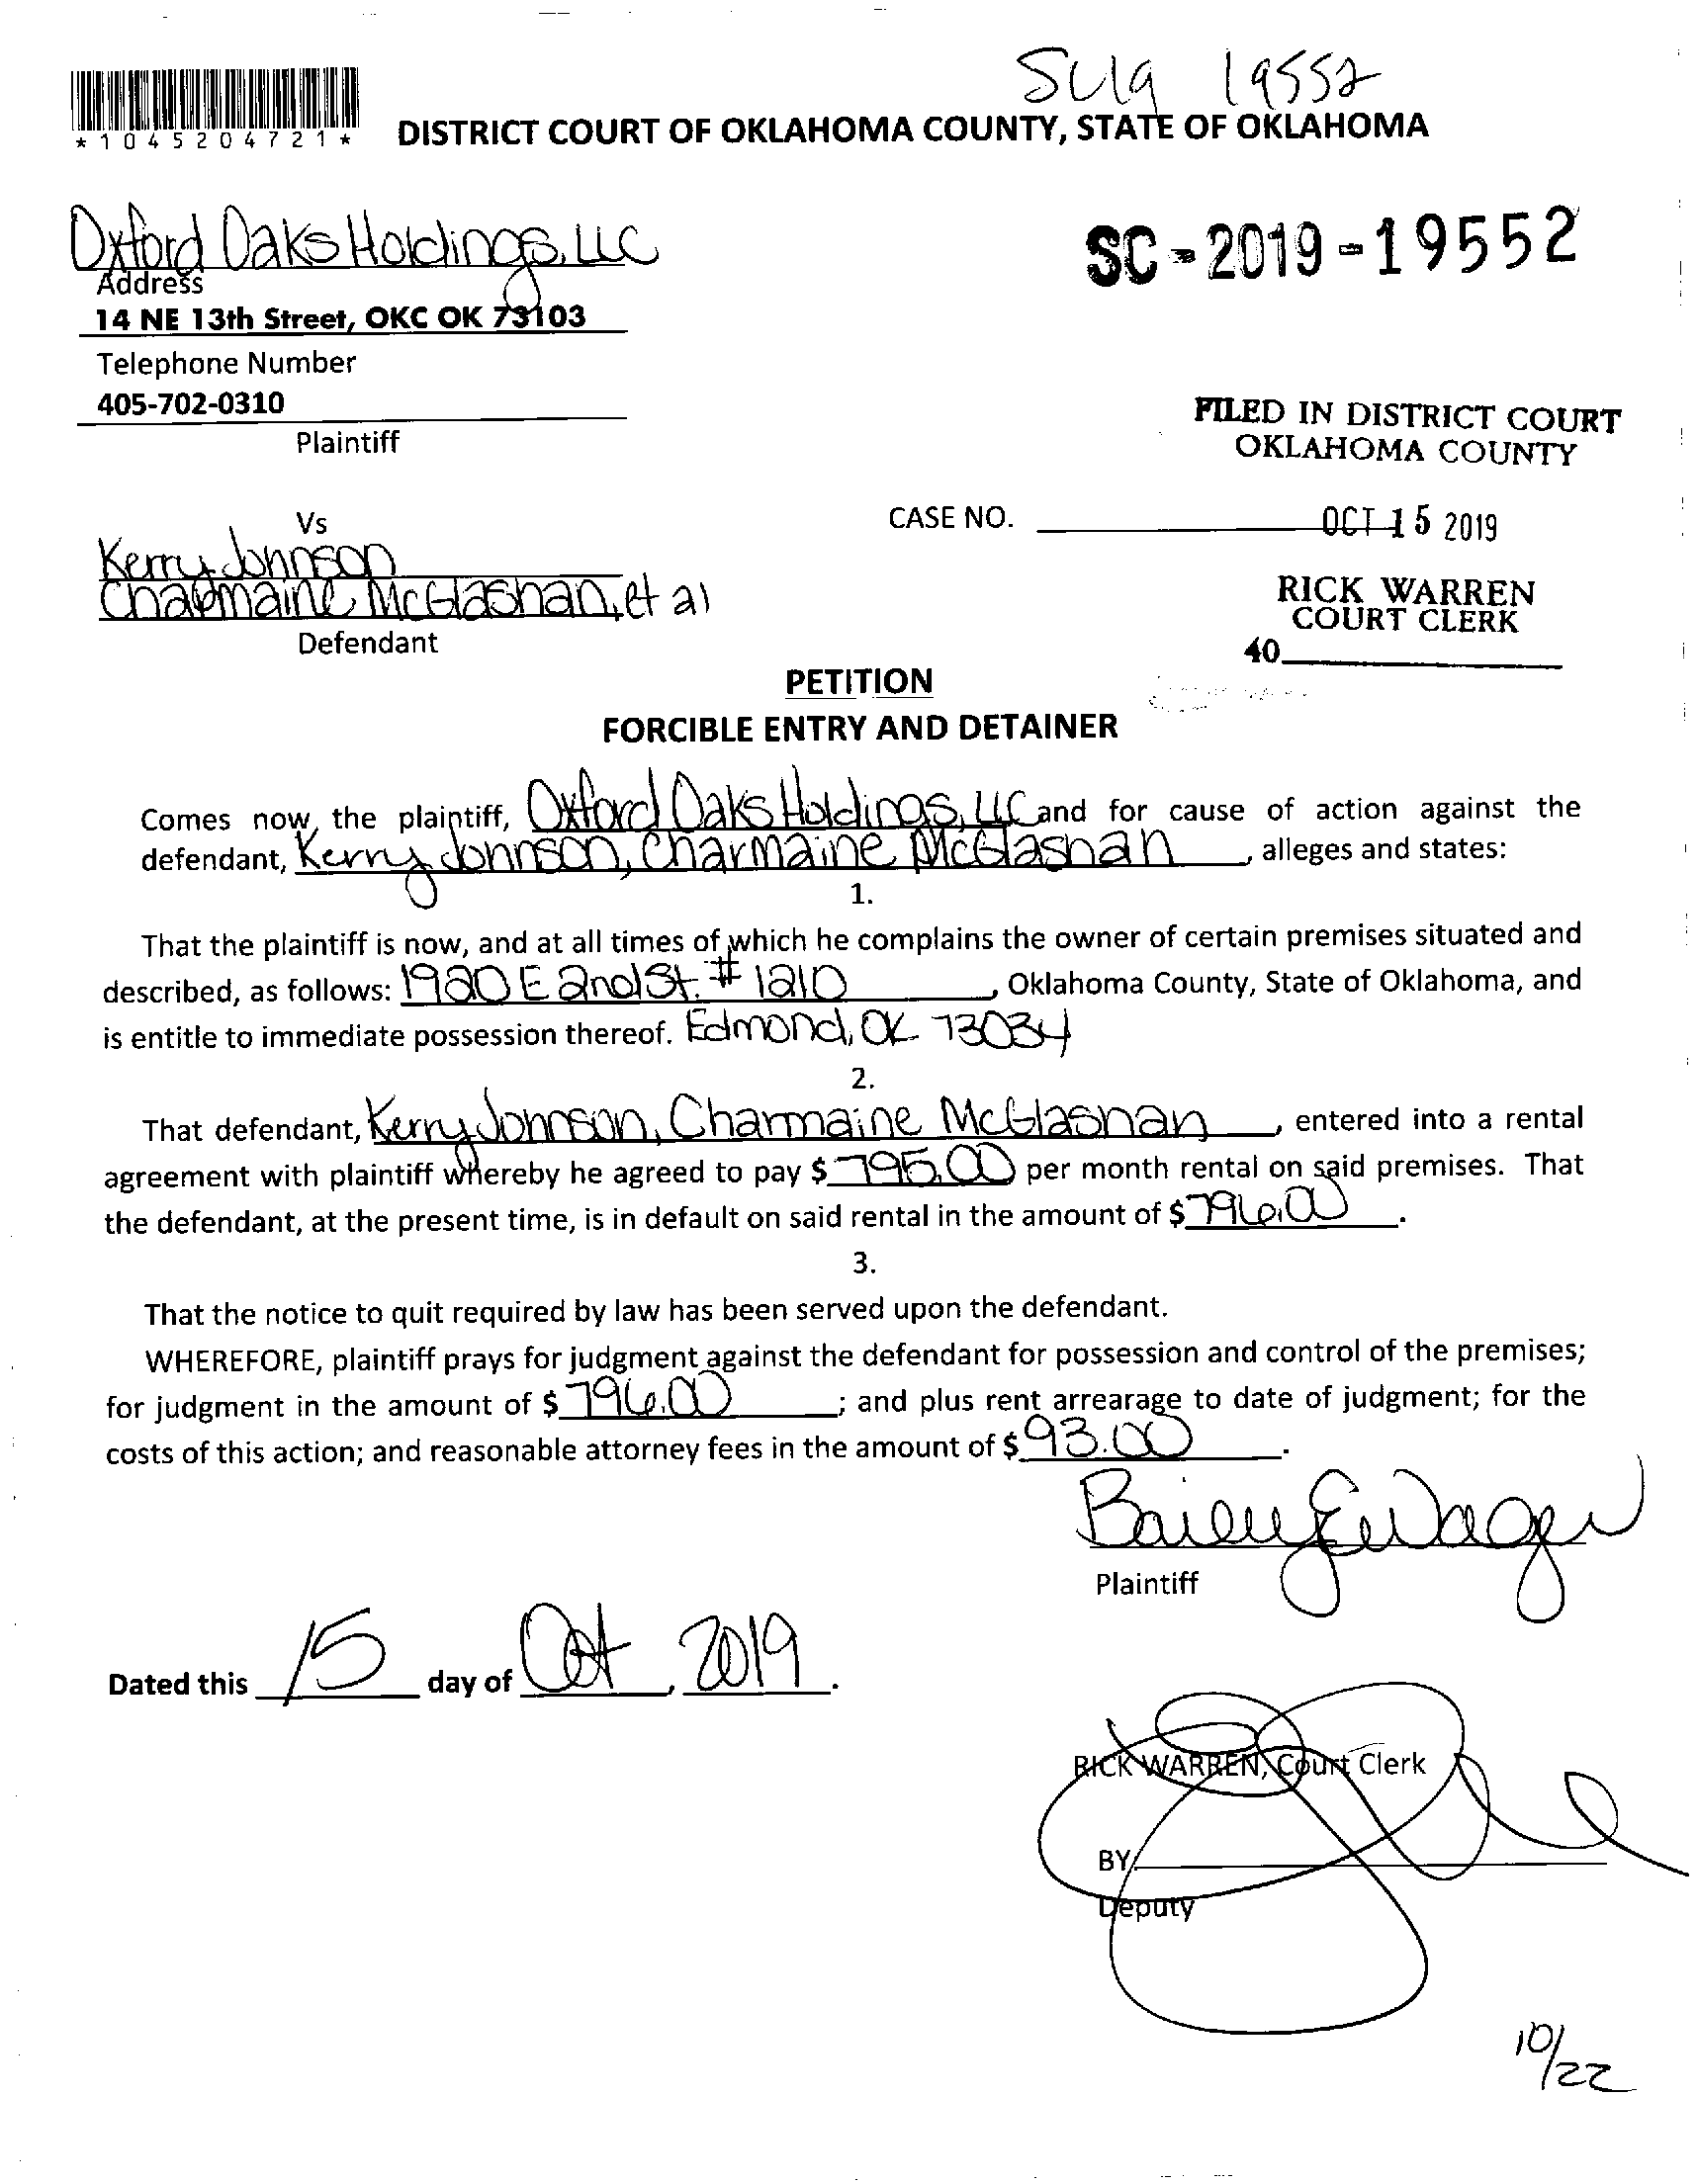 SC19 19552
*1045204721*
DISTRICT COURT OF OKLAHOMA COUNTY, STATE OF OKLAHOMA
Oxford Oaks Holdings, LLC
SC-2019-19552
Address
14 NE 13th Street, OKC OK 73103
Telephone Number
405-702-0310
Plaintiff
FILED IN DISTRICT COURT
OKLAHOMA COUNTY
Vs
CASE NO.
OCT 15 2019
Kerry Johnson
Charmaine McGlashan, et al
RICK WARREN
COURT CLERK
Defendant
40
PETITION
FORCIBLE ENTRY AND DETAINER
Comes now, the plaintiff, Oxford Oaks Holdings, LLC and for cause of action against the
defendant, Kerry Johnson, Charmaine McGlashan, alleges and states:
1.
That the plaintiff is now, and at all times of which he complains the owner of certain premises situated and
described, as follows: 1920 E 2nd St. # 1210, Oklahoma County, State of Oklahoma, and
is entitle to immediate possession thereof. Edmond, OK 73034
2.
That defendant, Kerry Johnson, Charmaine McGlashan, entered into a rental
agreement with plaintiff whereby he agreed to pay $ 795.00 per month rental on said premises. That
the defendant, at the present time, is in default on said rental in the amount of $ 796.00.
3.
That the notice to quit required by law has been served upon the defendant.
WHEREFORE, plaintiff prays for judgment against the defendant for possession and control of the premises;
for judgment in the amount of $ 796.00; and plus rent arrearage to date of judgment; for the
costs of this action; and reasonable attorney fees in the amount of $ 93.00.
Plaintiff
Dated this 15 day of Oct, 2019.
RICK WARREN, Court Clerk
BY
Deputy
10/22